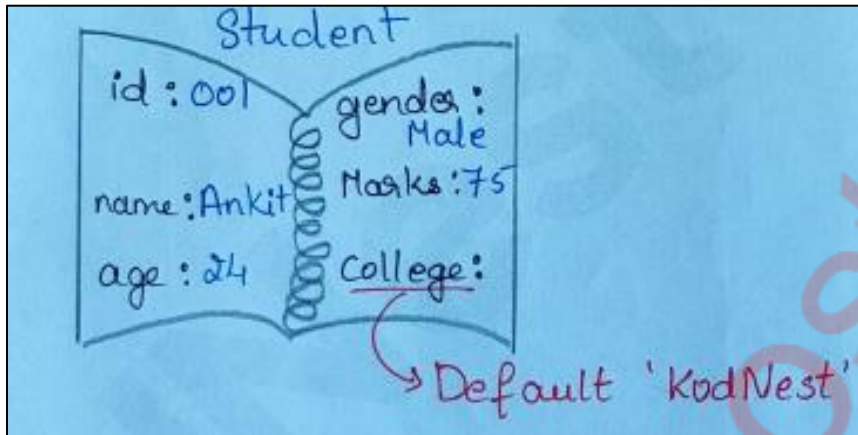 Student
id : 001
name : Ankit
age : 24
gender :
Male
Marks : 75
College :
Default 'KodNest'